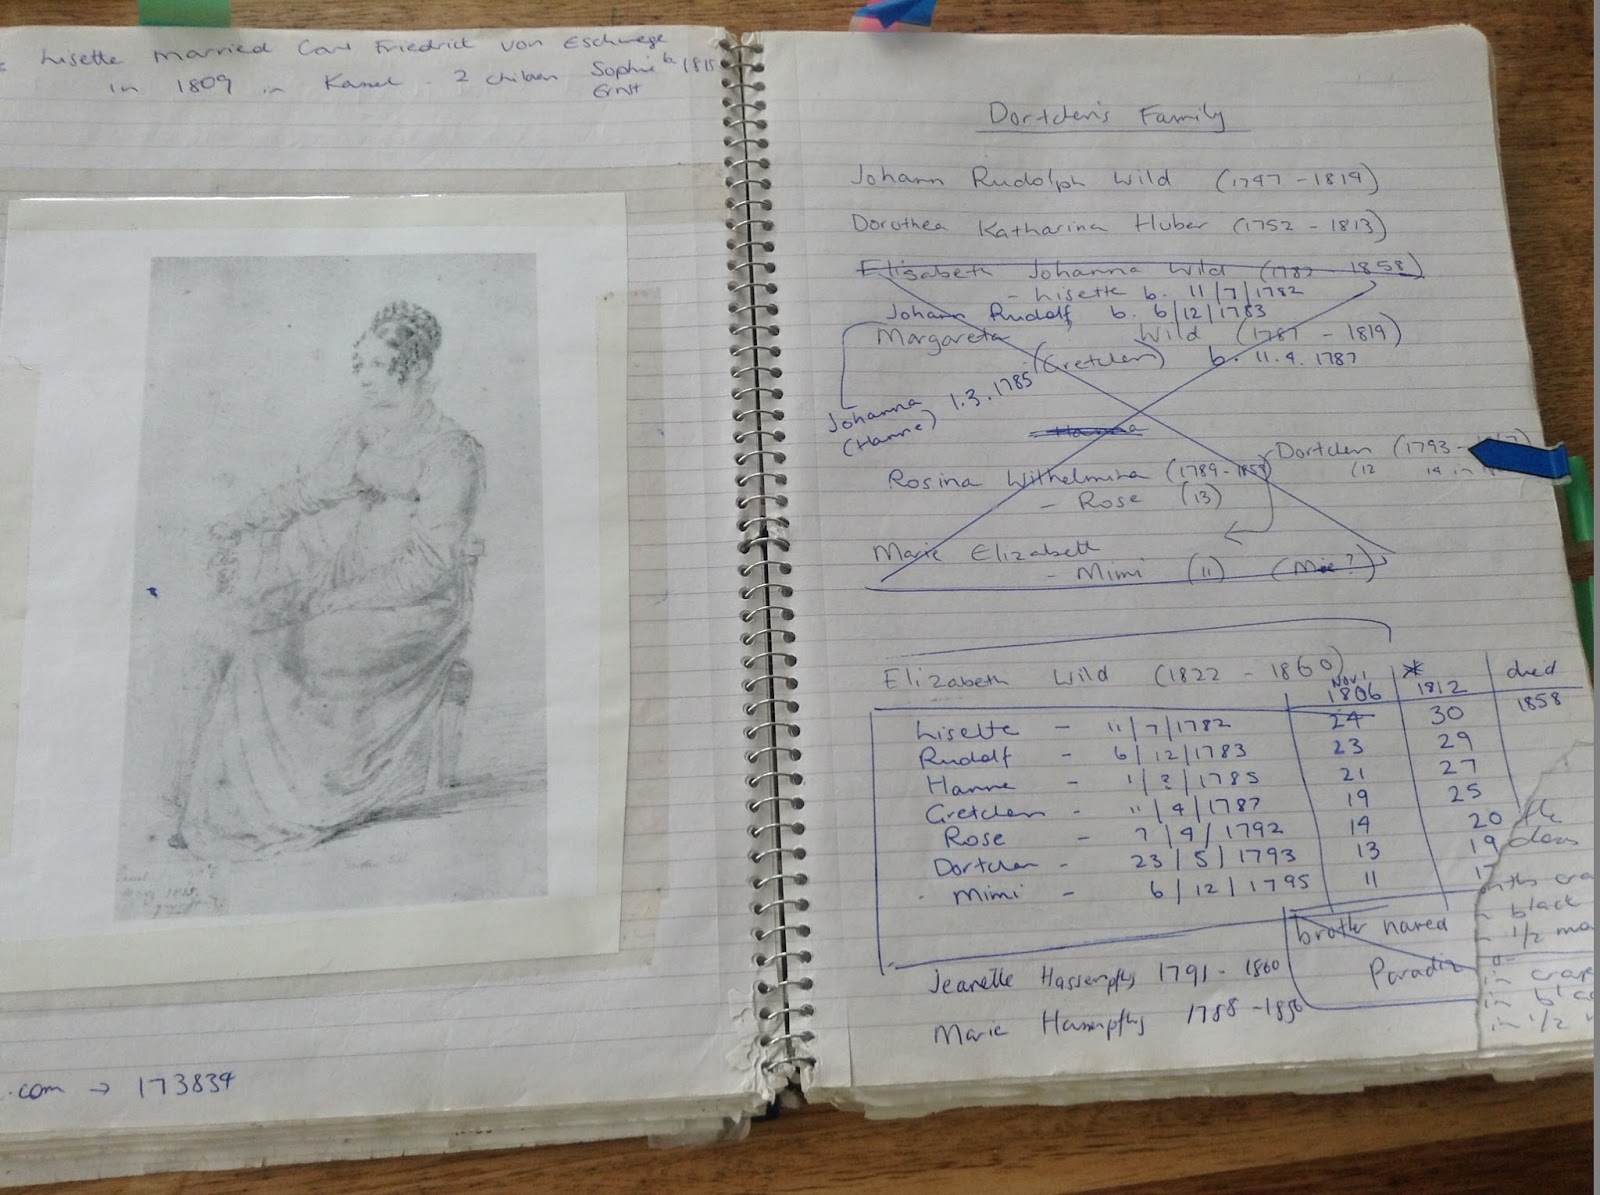 Lisette married Carl Friedrich von Eschwege
in 1809 in Kassel - 2 children Sophie b 1815
Ernst
.com → 173834
Dortchen's Family
Johann Rudolph Wild (1747 - 1814)
Dorothea Katharina Huber (1752 - 1813)
Elisabeth Johanna Wild (1782 1858)
- Lisette b. 11/7/1782
Johann Rudolf b. 6/12/1783
Margareta Wild (1787 - 1819)
(Gretchen) b. 11.4.1787
Johanna 1.3.1785
(Hanne)
Hanna
Dortchen (1793 -
(12 14 in
Rosina Wilhelmina (1789 - 1858)
- Rose (13)
Marie Elizabeth
- Mimi (11) (Mie?)
Elizabeth Wild (1822 - 1860)
Nov 1806 * 1812 died
Lisette - 11/7/1782 24 30 1858
Rudolf - 6/12/1783 23 29
Hanne - 1/3/1785 21 27
Gretchen - 11/4/1787 19 25
Rose - 7/4/1792 14 20
Dortchen - 23/5/1793 13 19
Mimi - 6/12/1795 11 17
brother named
Jeanette Hassenpflug 1791 - 1860
Marie Hassenpflug 1788 - 1856
black
in 1/2